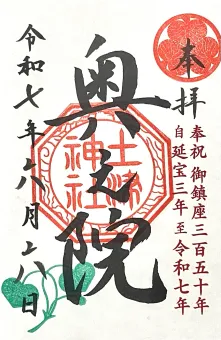 奉拝
奉祝 御鎮座三百五十年
自 延宝三年 至 令和七年
奥之院
土津
神社
令和七年八月八日